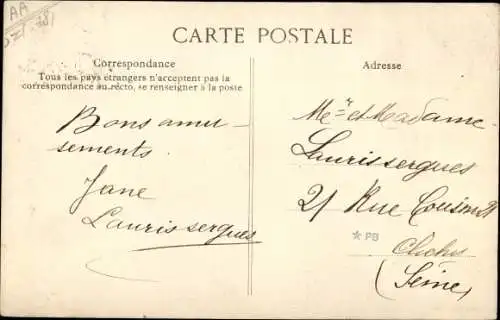 AA
CARTE POSTALE
Correspondance
Tous les pays étrangers n'acceptent pas la
correspondance au recto, se renseigner à la poste
Bons amu-
sements
Jane
Laurissergues
Adresse
Mr et Madame
Laurissergues
21 Rue
Clichy
(Seine)
PB